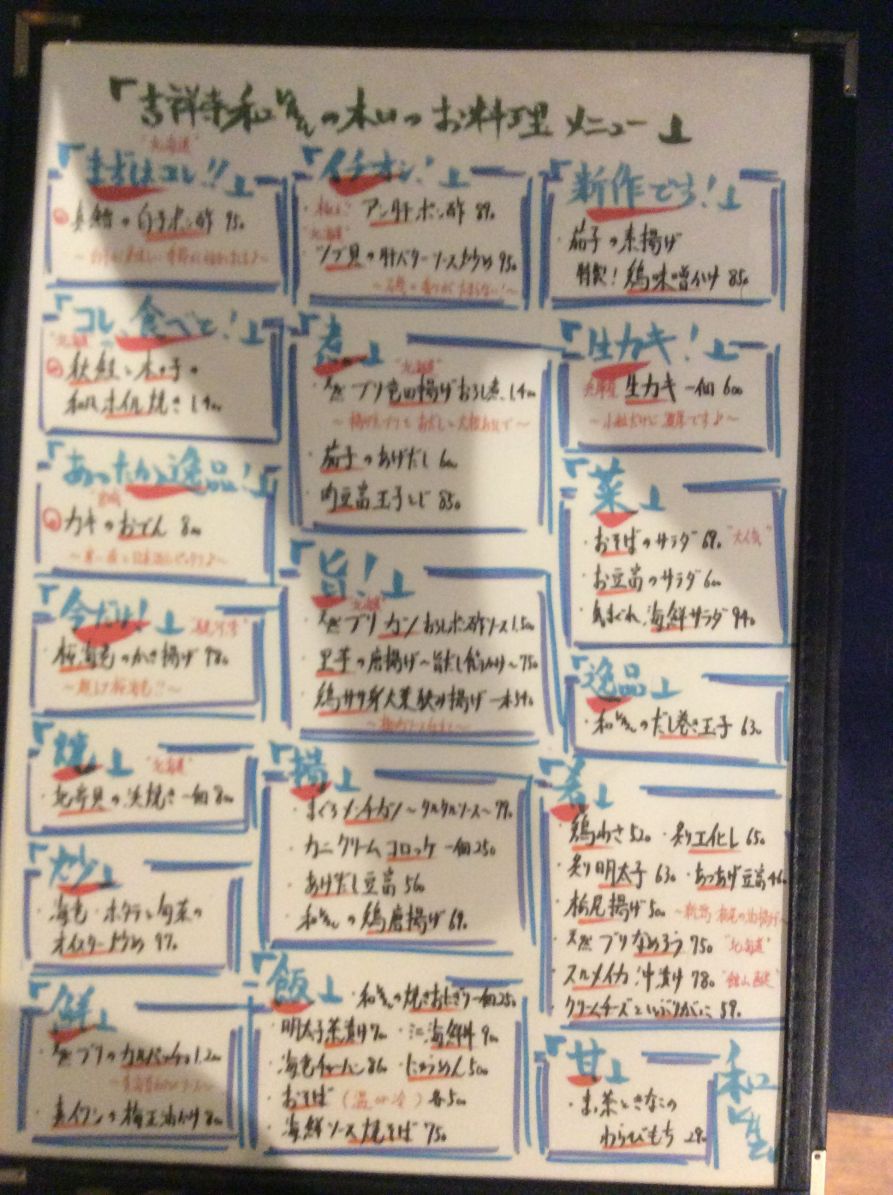 「吉祥寺和 の のお料理メニュー」
"北海道"
「まずはコレ!!」
真鱈の白子ポン酢 950
「イチオシ!」
アン肝ポン酢 890
"北海道"
ツブ貝の肝バターソース炒め 950
「新作です!」
・茄子の素揚げ
特製!鶏味噌かけ 850
「コレ、食べて!」
"北海道"
秋鮭と木の子の
和風オイル焼き 1,400
「煮」
"北海道"
・天然ブリ竜田揚げおろし煮 1,400
・茄子のあげだし 600
・肉豆富玉子とじ 850
「生カキ!」
兵庫産 生カキ 一個 600
〜小粒だけど濃厚です♪〜
「あったか逸品!」
"宮城"
カキのおでん 800
「菜」
・おそばのサラダ 690 "大人気"
・お豆富のサラダ 600
・気まぐれ海鮮サラダ 990
「今だけ!」
"駿河湾"
・桜海老のかき揚げ 980
「旨!」
"北海道"
・天然ブリカツおろしポン酢ソース 1,500
・里芋の唐揚げ〜旨だし餡かけ〜 750
・鶏ササ身大葉挟み揚げ 一本 390
「逸品」
・和 のだし巻き玉子 630
「焼」
"北海道"
・北寄貝の浜焼き 一個 800
「揚」
・まぐろメンチカツ〜タルタルソース〜 990
・カニクリームコロッケ 一個 250
・あげだし豆富 560
・和 の鶏唐揚げ 690
「肴」
・鶏わさ 520 ・炙り エイヒレ 650
・炙り明太子 630 ・あつあげ豆富 460
・栃尾揚げ 500 〜新潟 栃尾の油揚げ〜
・天然ブリなめろう 950 "北海道"
・スルメイカ沖漬け 780
・クリームチーズといぶりがっこ 590
「炒」
・海老・ホタテと旬菜の
オイスター炒め 970
「鮮」
・天然ブリのカルパッチョ 1,200
・真イワシの梅玉油かけ 800
「飯」
・和 の焼きおにぎり 一個 250
・明太子茶漬け 700 ・ミニ海鮮丼 900
・海老チャーハン 860 ・にゅうめん 500
・おそば (温or冷) 各 500
・海鮮ソース焼そば 750
「甘」
・お茶ときなこの
わらびもち 290